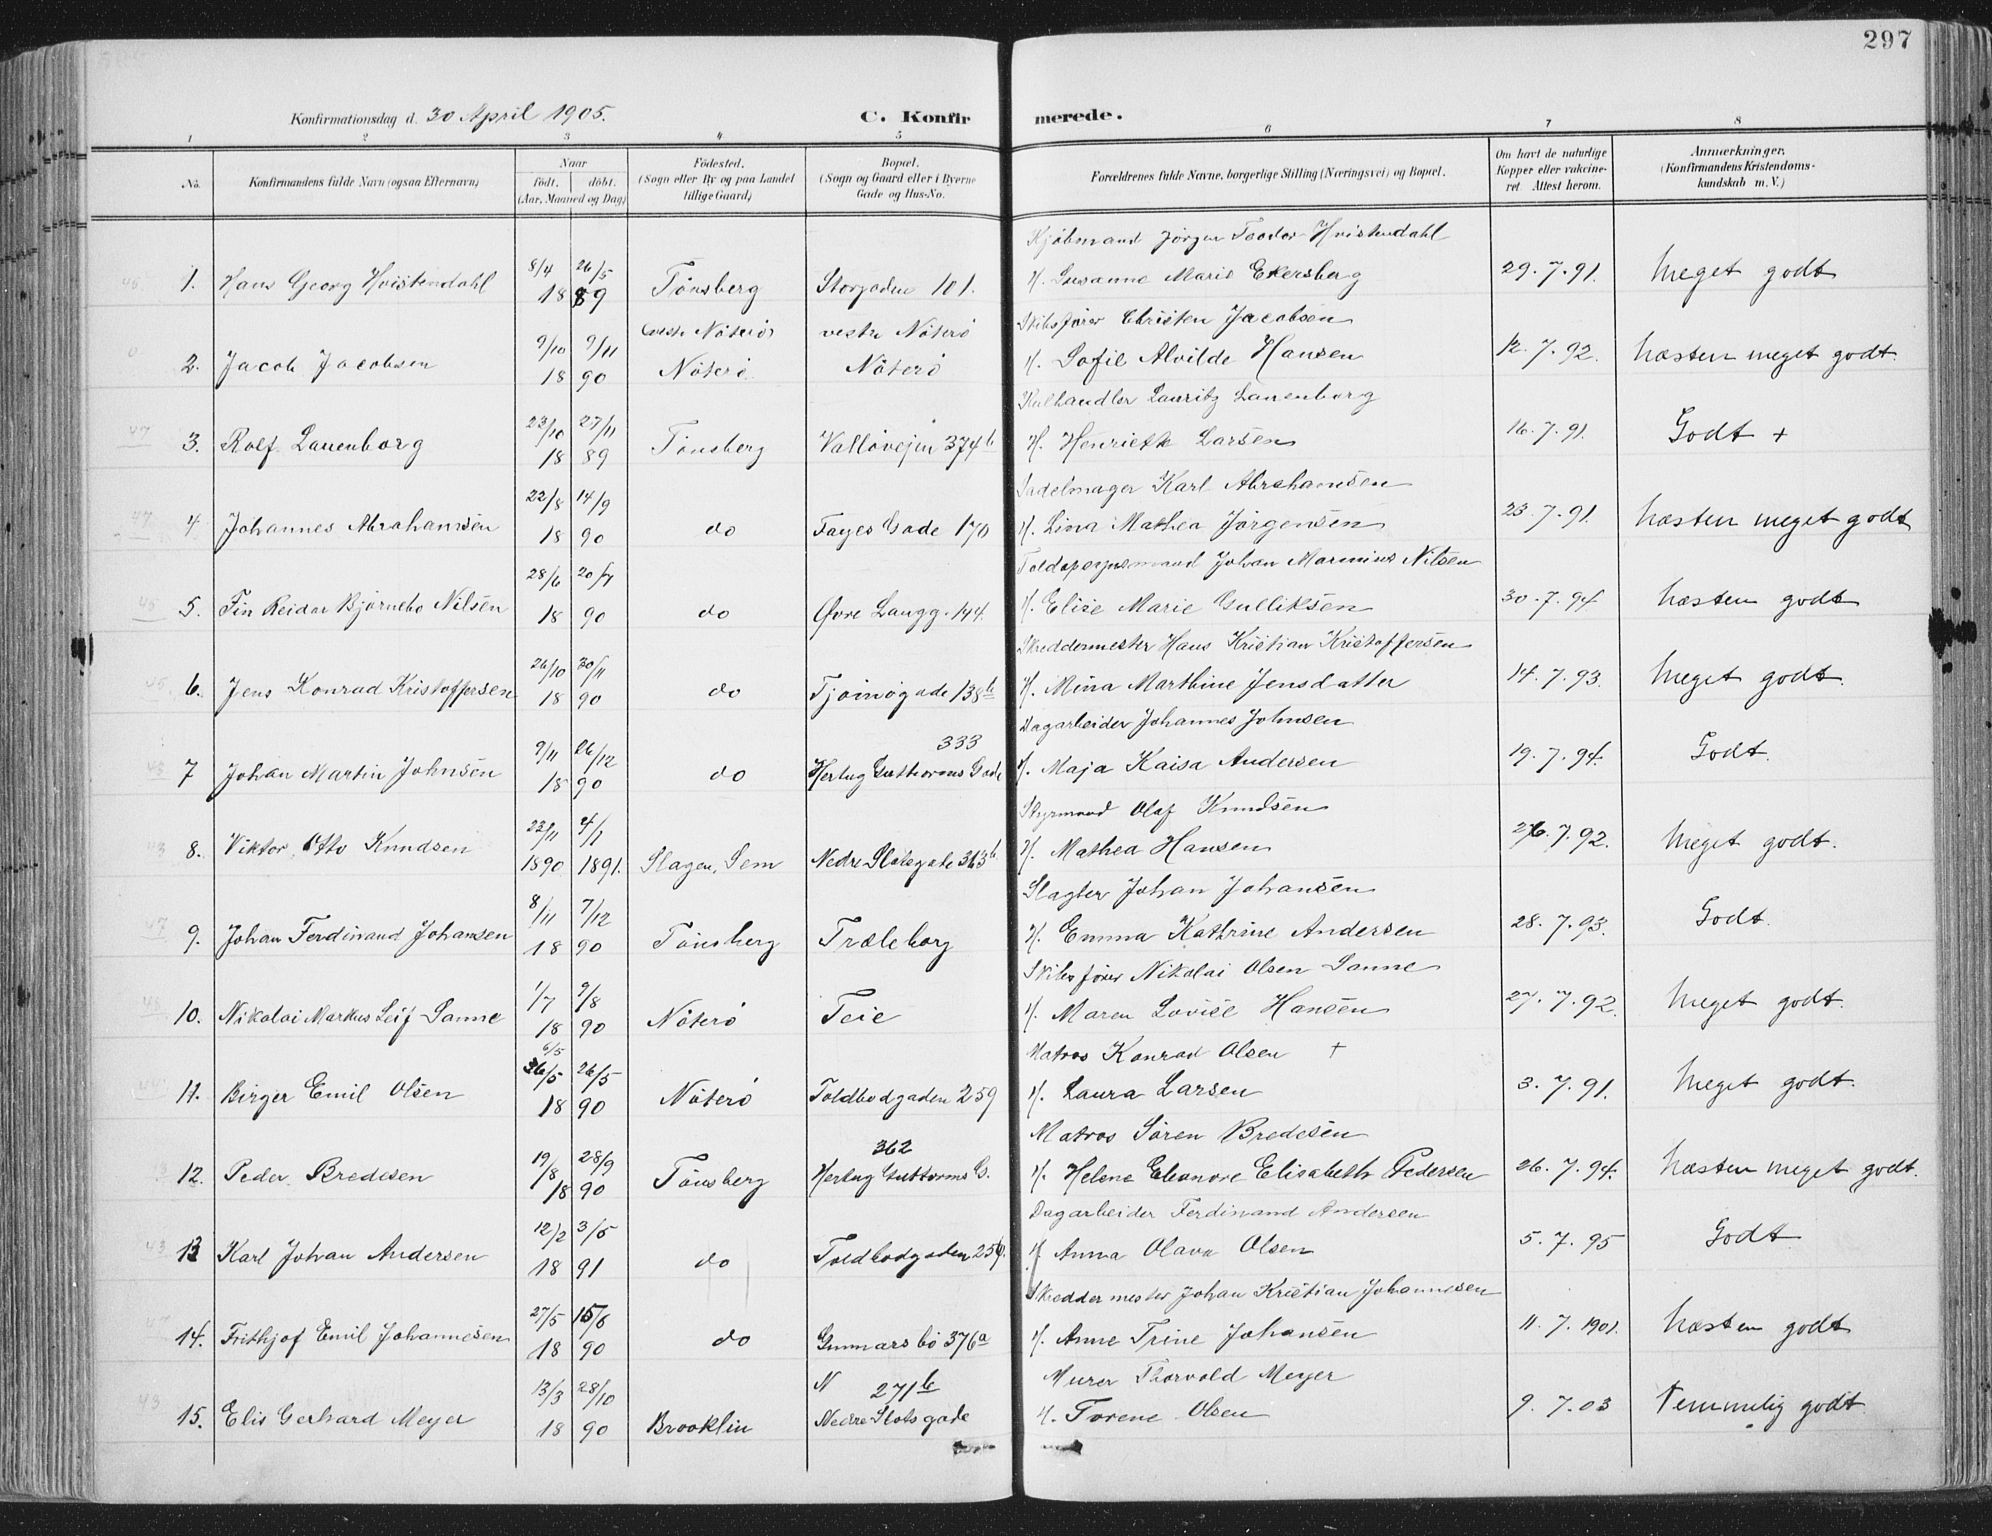 297
Konfirmationsdag d. 30 April 1905.
C. Konfirmerede.
1 2 3 4 5 6 7 8
No. Konfirmandens fulde Navn (ogsaa Efternavn)
Naar
födt. döbt.
(Aar, Maaned og Dag)
Födested.
(Sogn eller By og paa Landet
tillige Gaard)
Bopæl.
(Sogn og Gaard eller i Byerne
Gade og Hus-No.
Forældrenes fulde Navne, borgerlige Stilling (Næringsvei) og Bopæl.
Om havt de naturlige
Kopper eller vakcine-
ret. Attest herom.
Anmærkninger.
(Konfirmandens Kristendoms-
kundskab m. V.)
Kjøbmand Jørgen Teodor Hvistendahl
1. Hans Georg Hvistendahl 8/4 26/5 1889 Tönsberg Storgaden 101. H. Susanne Marie Ekersberg 29.7.91. Meget godt
Skibsfører Christen Jacobsen
vestre Nöterö
2. Jacob Jacobsen 9/10 9/11 1890 Nöterö Nöterö H. Sofie Alvilde Hansen 12.7.92. Næsten meget godt.
Kulhandler Lauritz Lauenborg
3. Rolf Lauenborg 23/10 27/11 1889 Tönsberg Vallöveien 374b H. Henriette Larsen 16.7.91. Godt +
Sadelmager Karl Abrahamsen
4 Johannes Abrahamsen 22/8 14/9 1890 do Fayes Gade 170 H. Lina Mathea Jørgensen 23.7.91. Næsten meget godt
Toldopsynsmand Johan Marinius Nilsen
5. Fin Reidar Bjørnebo Nilsen 28/6 20/7 1890 do Øvre Langg. 144. H. Elise Marie Gulliksen 30.7.94. Næsten godt
Skreddermester Hans Kristian Kristoffersen
6. Jens Konrad Kristoffersen 26/10 30/11 1890 do Tjømögade 138b H. Mina Marthine Jensdatter 14.7.93. Meget godt.
Dagarbeider Johannes Johnsen
333
7 Johan Martin Johnsen 9/11 26/12 1890 do Hertug Guthorms Gade H. Maja Kaisa Andersen 19.7.94. Godt.
Styrmand Olaf Knudsen
8. Viktor Otto Knudsen 23/11 4/1 1890 1891. Slagen, Sem Nedre Slotsgade 363b H. Mathea Hansen 26.7.92. Meget godt.
Slagter Johan Johansen
9. Johan Ferdinand Johansen 8/11 7/12 1890 Tönsberg Træleborg H. Emma Kathrine Andersen 28.7.93. Godt
Skibsfører Nikolai Olsen Sanne
10. Nikolai Markus Leif Sanne 1/7 9/8 1890 Nöterö Teie H. Maren Lovise Hansen 27.7.92. Meget godt.
6/5
Matros Konrad Olsen +
11. Birger Emil Olsen 26/5 26/5 1890 Nöterö Toldbodgaden 259 H. Laura Larsen 3.7.91. Meget godt.
Matros Sören Bredesen
362
12. Peder Bredesen 19/8 28/9 1890 Tönsberg Hertug Guttorms G. H. Helene Eleonore Elisabeth Pedersen 26.7.94. Næsten meget godt.
Dagarbeider Ferdinand Andersen
13 Karl Johan Andersen 12/2 3/5 1891 do Toldbodgaden 259. H Anna Olava Olsen 5.7.95 Godt
Skreddermester Johan Kristian Johannesen
14. Frithjof Emil Johannesen 27/5 15/6 1890 do Gunnarsbö 376a H. Anne Trine Johansen 11.7.1901. Næsten godt
Murer Thorvold Meyer
N 271b
15. Elis Gerhard Meyer 13/3 28/10 1890 Brooklin Nedre Slotsgade H. Torene Olsen 9.7.03 Temmelig godt